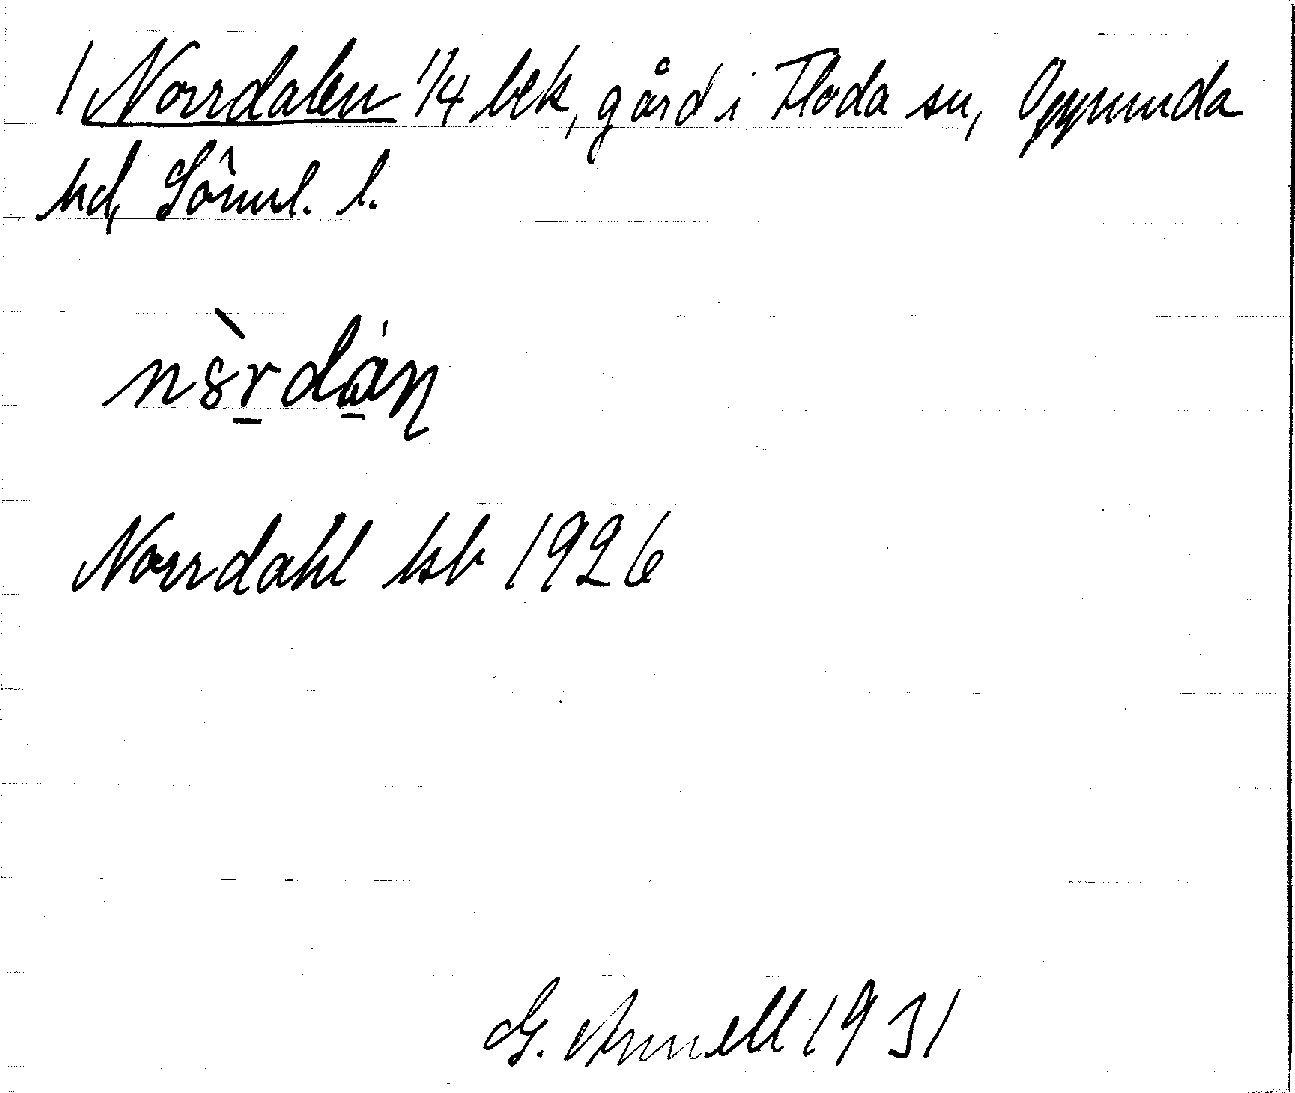 1 Norrdalen 1/4 bek, gård i Floda sn, Oppunda
hd, Sörml. l.
nòrdán
Norrdahl kb 1926
G. Annell 1931